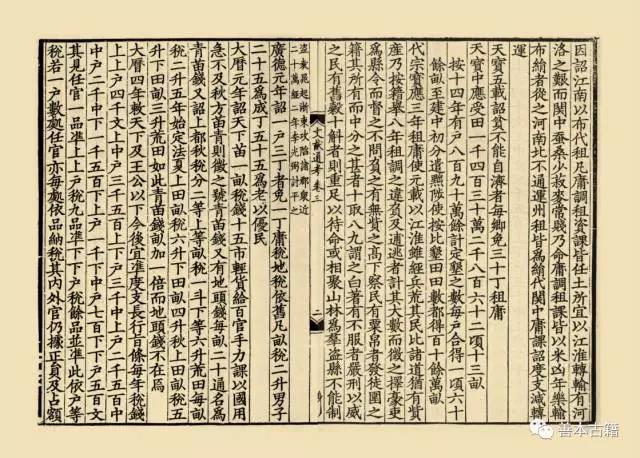 因詔江南以布代租凡庸調租資課皆任土所宜以江淮轉輸有河
洛之艱而關中蠶桑少菽麥常賤乃命庸調租課皆以米凶年樂輸
布絹者從之河南北不通運州租皆爲絹代關中庸課詔度支減轉
運
天寶五載詔貧不能自濟者每鄉免三十丁租庸
天寶中應受田一千四百三十萬二千八百六十二頃十三畝
按十四年有戶八百九十萬餘計定墾之數每戶合得一頃六十
餘畝至建中初分遣黜陟使按比墾田田數都得百十餘萬畝
代宗寶應三年租庸使元載以江淮雖經兵荒其民比諸道猶有貲
產乃按籍舉八年租調之違負及逋逃者計其大數而徵之擇豪吏
爲縣令而督之不問負之有無貲之高下察民有粟帛者發徒圍之
籍其所有而中分之甚者十取八九謂之白著有不服者嚴刑以威
之民有蓄穀十斛者則重足以待命或相聚山林爲羣盜縣不能制
文獻通考卷三
二
盜袁晁起浙東攻陷諸郡衆近
二十萬經二年李光弼討平之
廣德元年詔一戶三丁者免一丁庸稅地稅依舊凡畝稅二升男子
二十五爲成丁五十五爲老以優民
大曆元年詔天下苗一畝稅錢十五市輕貨給百官手力課以國用
急不及秋方苗青則徵之號青苗錢又有地頭錢每畝二十通名爲
青苗錢又詔上都秋稅分二等上等畝稅一斗下等六升荒田每畝
稅二升五年始定法夏上田畝稅六升下田畝四升秋上田畝稅五
升下田畝三升荒田如此青苗錢畝加一倍而地頭錢不在焉
大曆四年敕天下及王公以下今後宜準度支長行旨條每年稅錢
上上戶四千文上中戶三千五百上下戶三千中上戶二千五百中
中戶二千中下一千五百下上戶一千下中戶七百下下戶五百文
其見任官一品準上上戶稅九品準下下戶稅餘品並準此依戶等
稅若一戶數處任官亦每處依品納稅其內外官仍據正員及占額
善本古籍